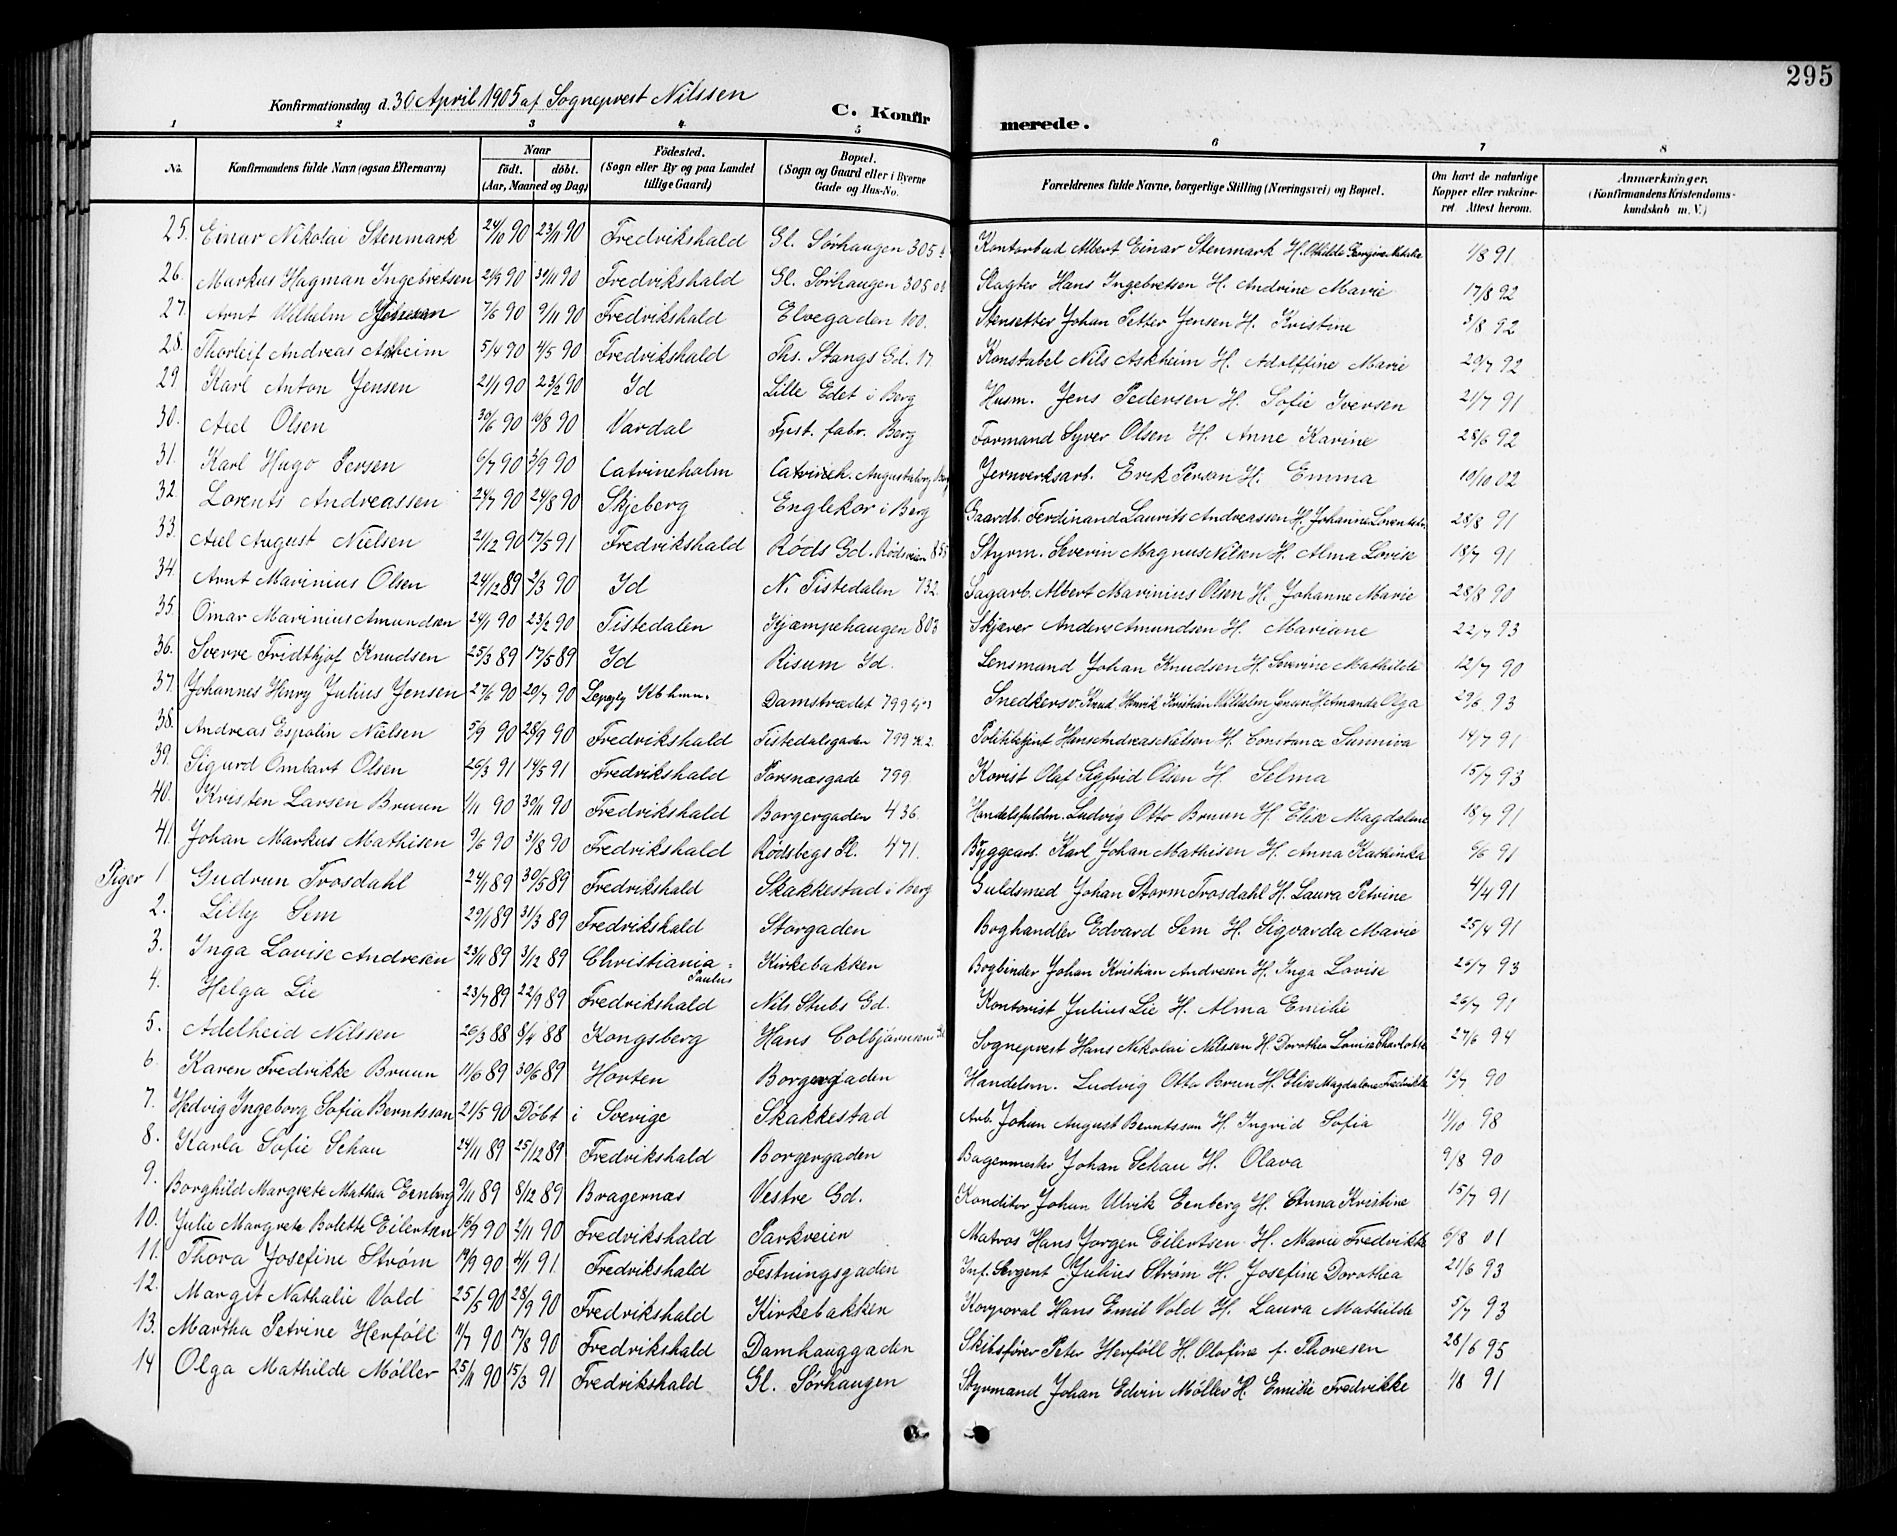 295
Konfirmationsdag d. 30 April 1905 af Sogneprest Nilssen
C. Konfirmerede.
1 2 3 4 5 6 7 8
No. Konfirmandens fulde Navn (ogsaa Efternavn) Naar födt. döbt. (Aar, Maaned og Dag) Födested. (Sogn eller By og paa Landet tillige Gaard) Bopæl. (Sogn og Gaard eller i Byerne Gade og Hus-No. Forældrenes fulde Navne, borgerlige Stilling (Næringsvei) og Bopæl. Om havt de naturlige Kopper eller vakcineret. Attest herom. Anmærkninger. (Konfirmandens Kristendomskundskab m. V.)
25. Einar Nikolai Stenmark 24/10 90 23/11 90 Fredrikshald Gl. Sørhaugen 305 Kontorbud Albert Einar Stenmark H. Othilde Georgine 1/8 91
26. Markus Hagman Ingebretsen 21/9 90 30/11 90 Fredrikshald Gl. Sørhaugen 305 Slagter Hans Ingebretsen H. Andrine Marie 17/8 92
27. Arnt Wilhelm 7/6 90 9/11 90 Fredrikshald Elvegaden 100. Stensetter Johan Petter Jensen H. Kristine 3/8 92
28. Thorleif Andreas Askheim 5/4 90 4/5 90 Fredrikshald Ths. Stangs Gd. 17 Konstabel Nils Askheim H. Adolffine Marie 29/7 92
29 Karl Anton Jensen 21/1 90 23/2 90 Id Lille Edet i Berg Husm. Jens Pedersen H. Sofie Iversen 21/7 91
30. Axel Olsen 30/6 90 10/8 90 Vardal Fyst. fabr. Berg Formand Syver Olsen H. Anne Karine 28/6 92
31. Karl Hugo Persen 6/7 90 3/9 90 Catrineholm Catrineh. Augustaborg Berg Jernverksarb. Erik Person H. Emma 10/10 02
32 Lorents Andreassen 24/7 90 24/8 90 Skjeberg Englekor i Berg Gaardb. Ferdinand Laurits Andreassen H. Johanne 28/8 91
33. Axel August Nielsen 21/12 90 17/5 91 Fredrikshald Røds Gd. Rødsveien 855 Styrm. Severin Magnus Nilsen H. Alma Lovise 18/7 91
34. Arnt Marinius Olsen 24/12 89 2/3 90 Id N. Tistedalen 732. Sagarb. Albert Marinius Olsen H. Johanne Marie 28/8 90
35. Omar Marinius Amundsen 24/1 90 23/2 90 Tistedalen Kjæmpehaugen 803 Skjærer Anders Amundsen H. Mariane 22/7 93
36. Sverre Fridthjof Knudsen 25/3 89 17/5 89 Id Risum Id. Lensmand Johan Knudsen H. Severine Mathilde 12/7 90
37. Johannes Henry Julius Jensen 27/6 90 20/7 90 Kbhmn. Damstrædet 799 Snedkersv. Knud Henrik Kristian Wilhelm Jensen H. Amanda Olga 29/6 93
38. Andreas Espolin Nielsen 5/9 90 28/9 90 Fredrikshald Tistedalsgaden 799 K. 2. Politibtjent Hans Andreas Nielsen H. Constance Sunniva 14/7 91
39. Sigurd Ombart Olsen 26/3 91 14/5 91 Fredrikshald Porsnæsgade 799 Korist Olaf Sigfrid Olsen H. Selma 15/7 93
40. Kristen Larsen Bruun 1/11 90 30/11 90 Fredrikshald Borgergaden 436. Handelsfuldm. Ludvig Otto Bruun H. Elise Magdalene 18/7 91
41. Johan Markus Mathisen 9/6 90 31/8 90 Fredrikshald Rødsbegs Pl. 471. Byggearb. Karl Johan Mathisen H. Anna Kathinka 6/6 91
Piger 1 Gudrun Trosdahl 24/1 89 30/5 89 Fredrikshald Skakkestad i Berg Guldsmed Johan Storm Trosdahl H. Laura Petrine 4/4 91
2. Lilly Sem 29/1 89 31/3 89 Fredrikshald Storgaden Boghandler Edvard Sem H. Sigvarda Marie 25/4 91
3. Inga Lovise Andresen 23/11 89 3/12 89 Christiania Paulus Kirkebakken Bogbinder Johan Kristian Andresen H. Inga Lovise 25/7 93
4. Helga Lie 23/7 89 22/9 89 Fredrikshald Nils Stubs Gd. Kontorist Julius Lie H. Alma Emilie 26/7 91
5. Adelheid Nilssen 26/3 88 8/4 88 Kongsberg Hans Colbjørnsens Gd Sogneprest Hans Nikolai Nilssen H. Dorothea Louise Charlotte 27/6 94
6. Karen Fredrikke Bruun 11/6 89 30/6 89 Horten Borgergaden Handelsm. Ludvig Otto Brun H. Elise Magdalene Fredrikke 12/7 90
7. Hedvig Ingeborg Sofia Berntsson 21/5 90 Döbt i Sverige Skakkestad Arb. Johan August Berntsson H. Ingrid Sofia 11/10 98
8. Karla Sofie Schau 24/11 89 25/12 89 Fredrikshald Borgergaden Bagermester Johan Schau H. Olava 9/8 90
9. Borghild Margrete Mathea Eenberg 9/11 89 8/12 89 Bragernæs Vestre Gd. Konditor Johan Ulrik Eenberg H. Anna Kristine 15/7 91
10. Julie Margrete Bolette Eilertsen 15/9 90 2/11 90 Fredrikshald Parkveien Matros Hans Jørgen Eilertsen H. Marie Fredrikke 6/8 01
11. Thora Josefine Strøm 19/9 90 4/1 91. Fredrikshald Festningsgaden Inf. Sergent Julius Strøm H. Josefine Dorothea 21/6 93
12. Margit Nathalie Vold 25/5 90 28/9 90 Fredrikshald Kirkebakken Korporal Hans Emil Vold H. Laura Mathilde 5/7 93
13. Martha Petrine Herföll 11/7 90 17/8 90 Fredrikshald Damhauggaden Skibsfører Peter Herföll H. Olofine f. Thoresen 28/6 95
14 Olga Mathilde Møller 25/11 90 15/3 91 Fredrikshald Gl. Sørhaugen Styrmand Johan Edvin Møller H. Emilie Fredrikke 1/8 91